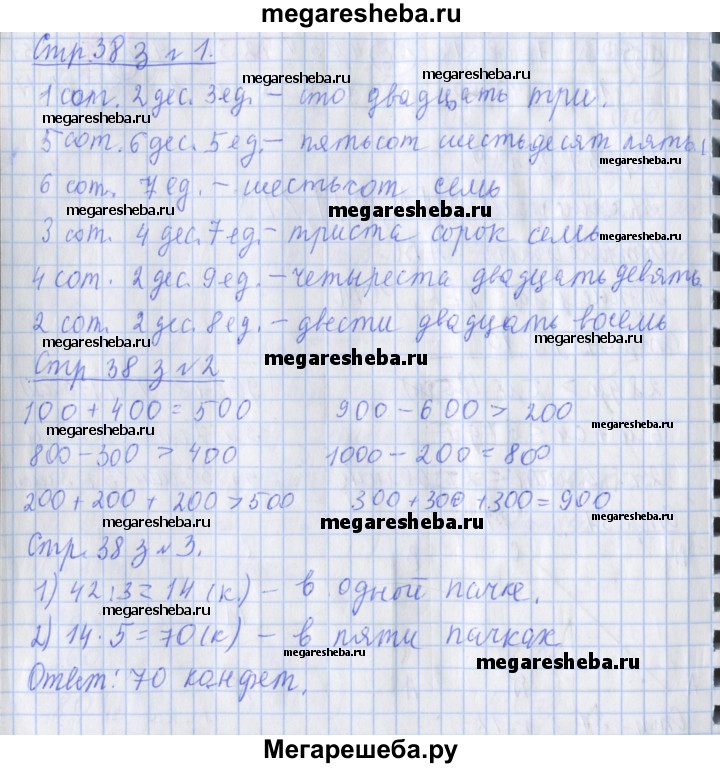 megaresheba.ru
Стр. 38 з № 1.
megaresheba.ru megaresheba.ru
1 сот. 2 дес. 3 ед. – сто двадцать три.
megaresheba.ru
5 сот. 6 дес. 5 ед. – пятьсот шестьдесят пять.
megaresheba.ru
6 сот. 7 ед. – шестьсот семь
megaresheba.ru megaresheba.ru
3 сот. 4 дес. 7 ед. – триста сорок семь
megaresheba.ru
4 сот. 2 дес. 9 ед. – четыреста двадцать девять.
megaresheba.ru
2 сот. 2 дес. 8 ед. – двести двадцать восемь
megaresheba.ru
Стр 38 з № 2
megaresheba.ru megaresheba.ru
100 + 400 = 500 900 – 600 > 200
megaresheba.ru megaresheba.ru
800 – 300 > 400 1000 – 200 = 800
200 + 200 + 200 > 500 300 + 300 + 300 = 900
megaresheba.ru megaresheba.ru megaresheba.ru
Стр. 38 з № 3.
1) 42 : 3 = 14 (к.) – в одной пачке.
megaresheba.ru megaresheba.ru
2) 14 · 5 = 70 (к) – в пяти пачках
megaresheba.ru megaresheba.ru
Ответ: 70 конфет.
Мегарешеба.ру